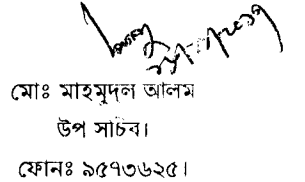 মোঃ মাহমুদল আলম
উপ সচিব।
ফোনঃ ৯৫৭৩৬২৫।